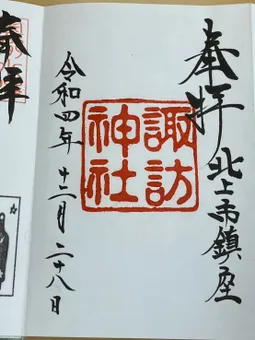 奉拝
北上市鎮座
諏訪
神社
令和四年十二月二十八日
奉拝